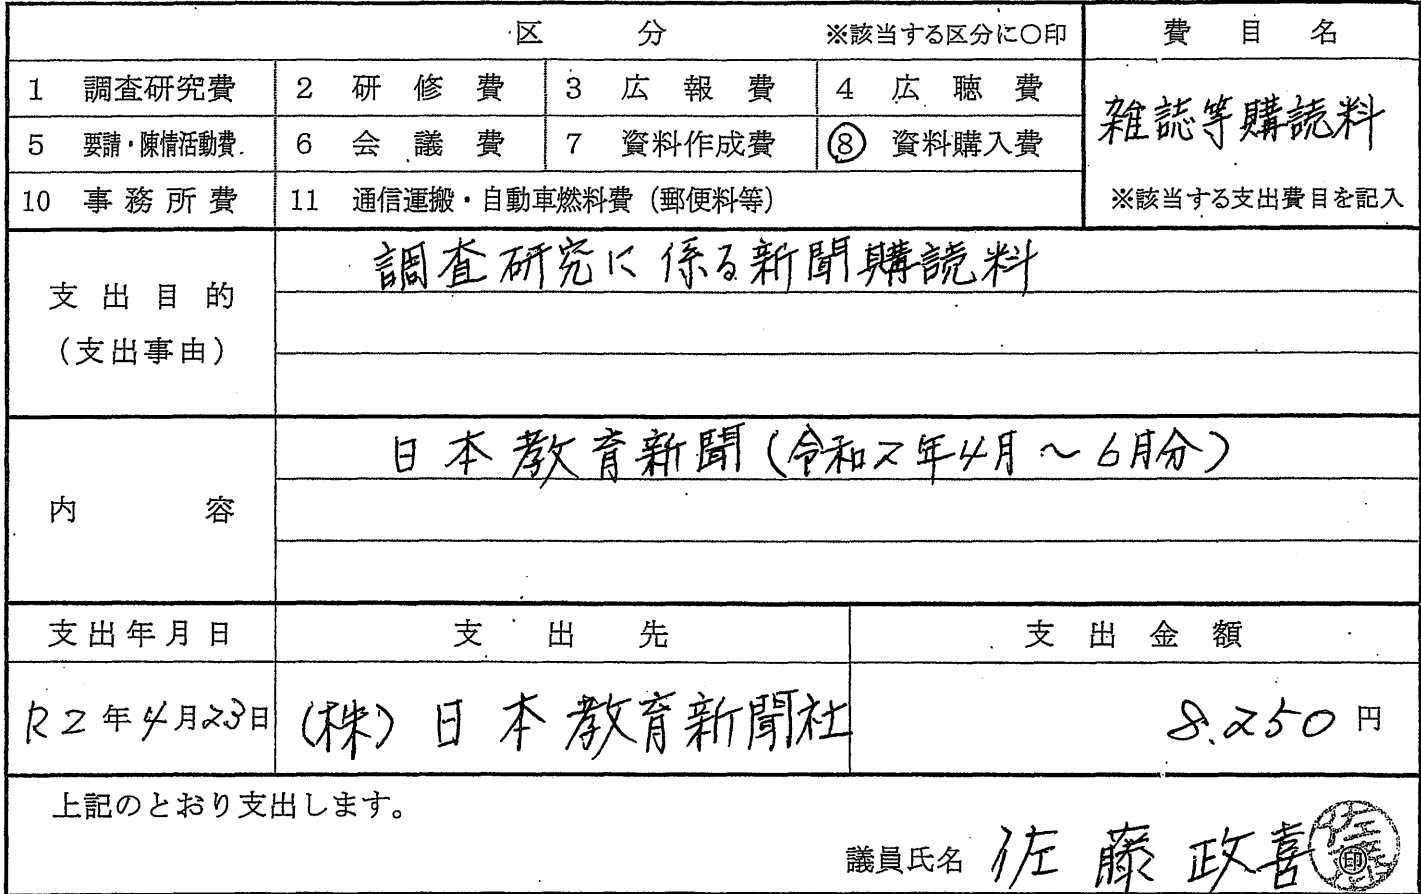 区 分 ※該当する区分に〇印 費 目 名
1 調査研究費 2 研 修 費 3 広 報 費 4 広 聴 費
雑誌等購読料
5 要請・陳情活動費 6 会 議 費 7 資料作成費 ⑧ 資料購入費
10 事務所費 11 通信運搬・自動車燃料費（郵便料等） ※該当する支出費目を記入
調査研究に係る新聞購読料
支 出 目 的
（支出事由）
日本教育新聞(令和2年4月～6月分)
内 容
支出年月日 支 出 先 支 出 金 額
R2年4月23日 (株)日本教育新聞社 8.250円
上記のとおり支出します。
議員氏名 佐藤政喜 佐藤 印